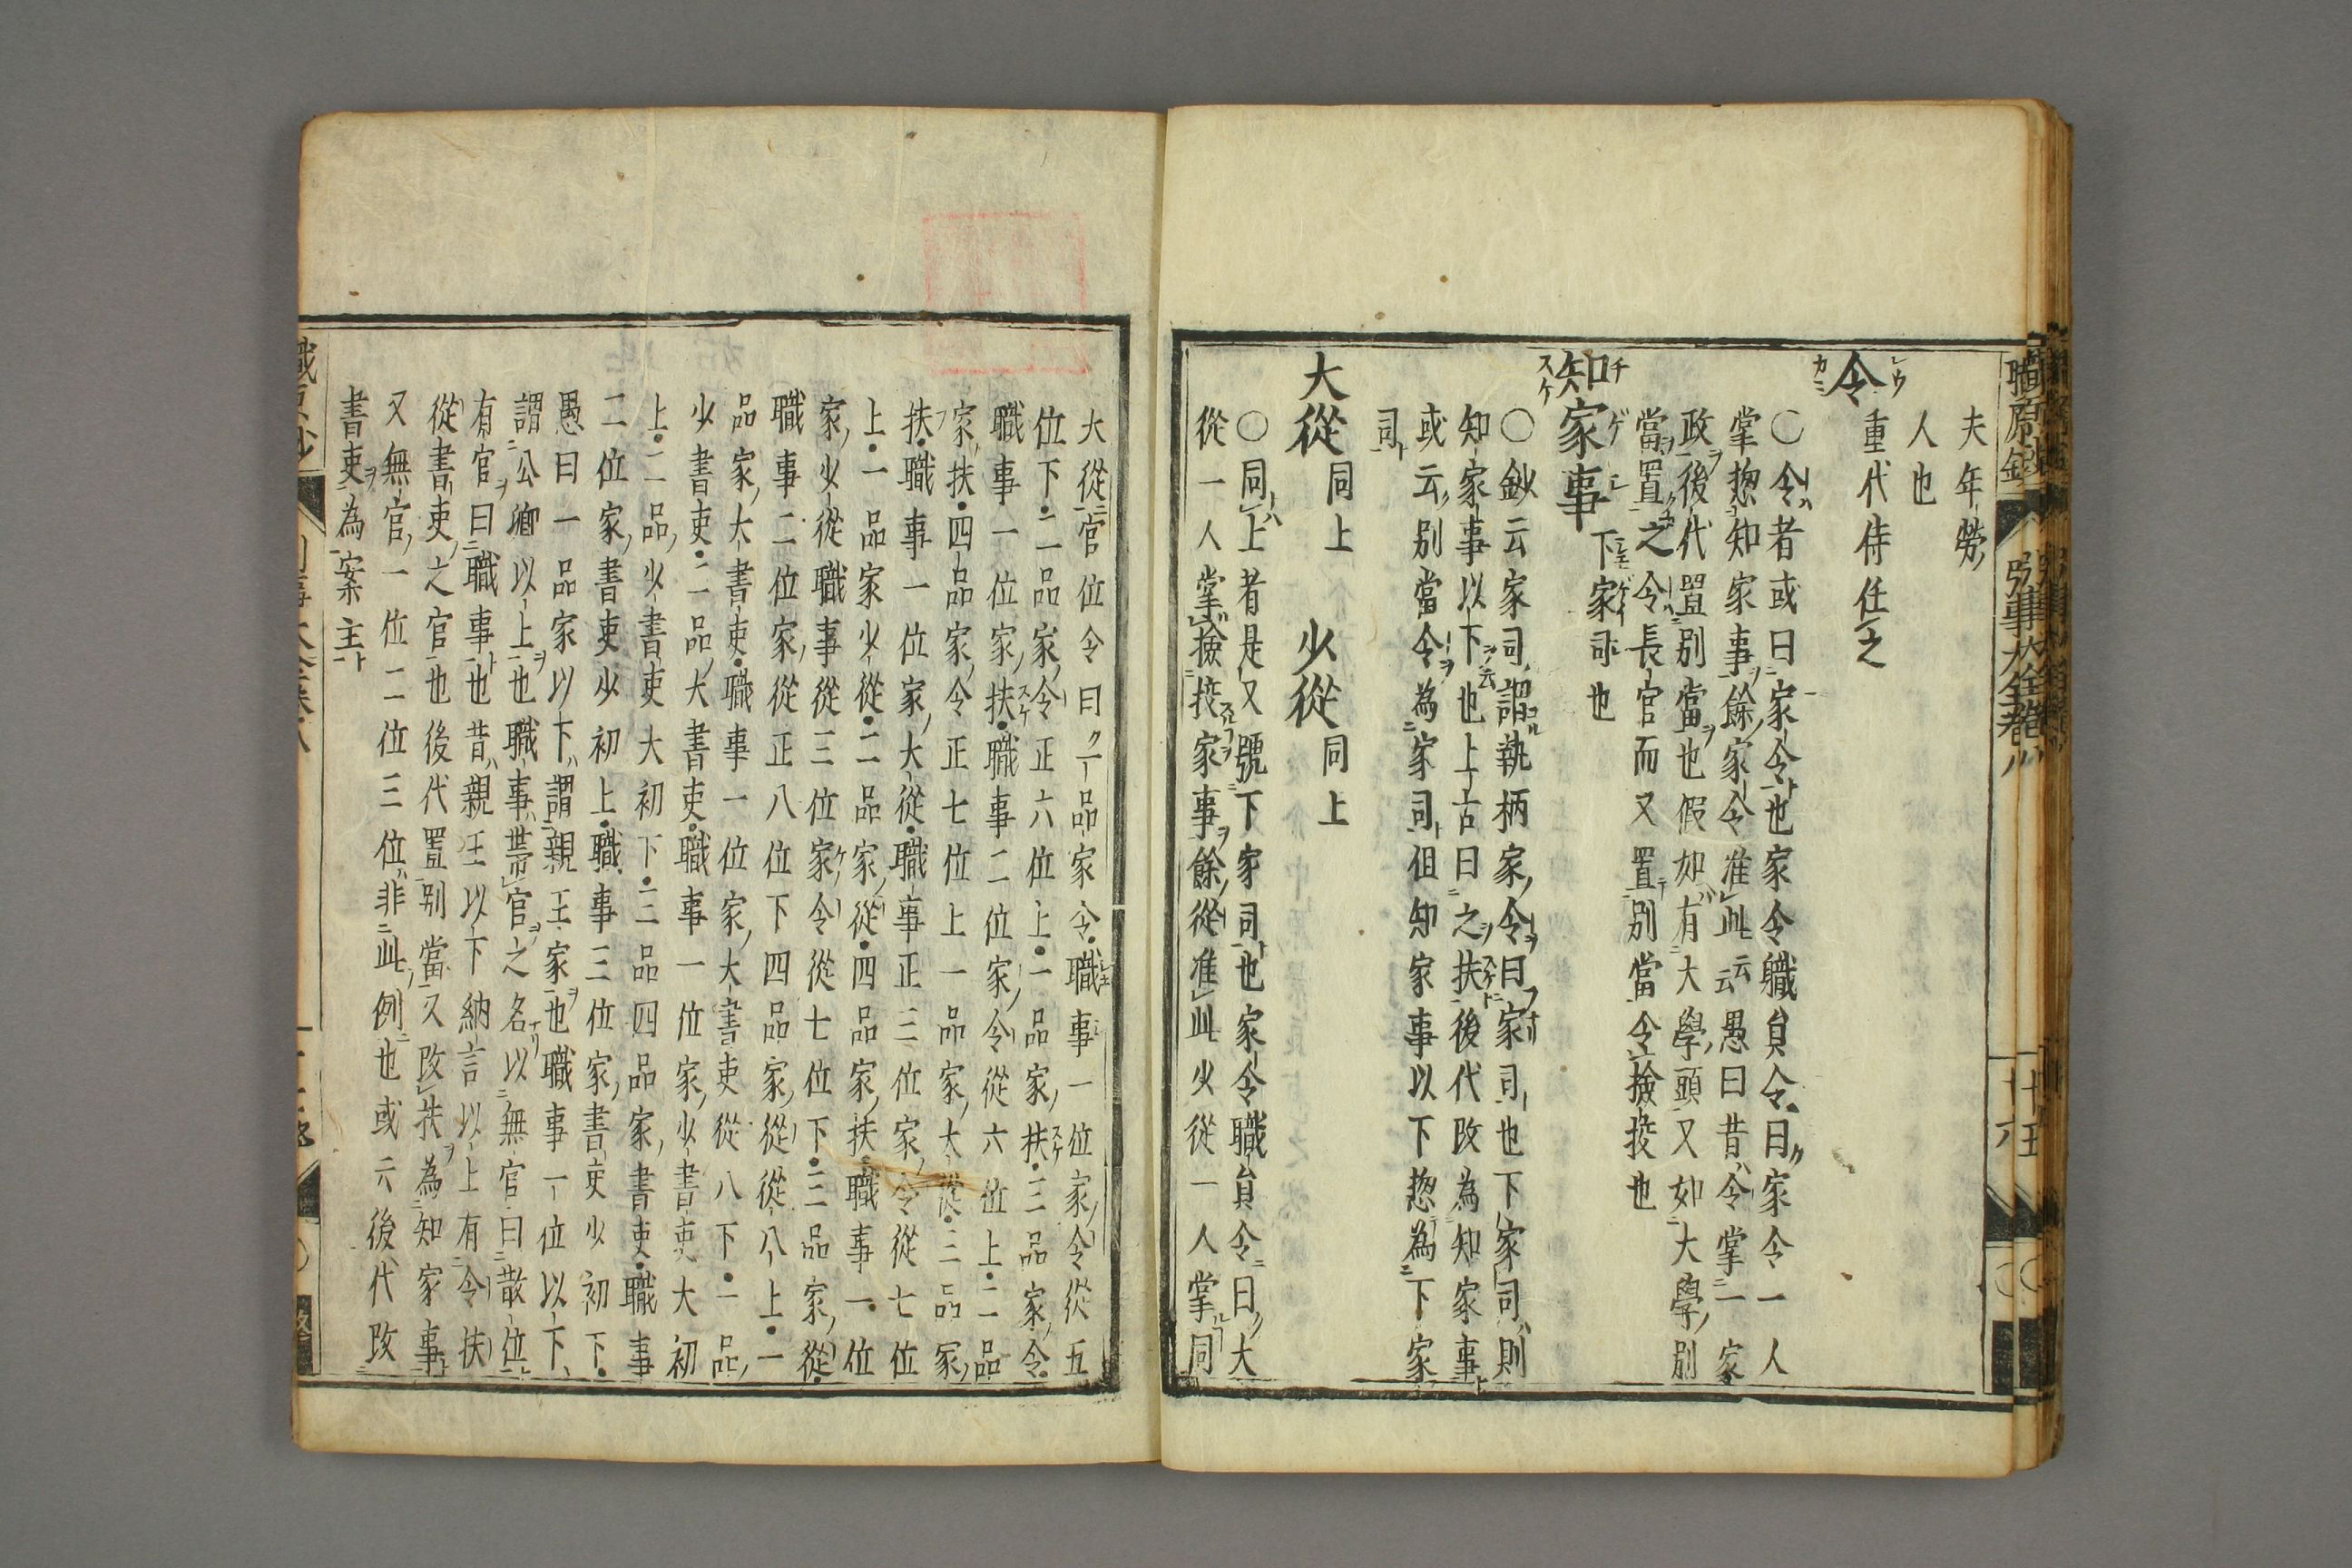 夫年勞
人也
令 重代侍任之
○令者或曰家令也家令職員令曰家令一人
掌惣知家事餘家令准此云云愚曰昔令掌一家
政後代置別當也假如有大學頭又如大學別
當置之令長官而又置別當令撿挍也
知家事 下家司也
○鈔云家司謂執柄家令曰家司也下家司則
知家事以下也上古曰之扶後代改為知家事
或云別當令為家司但知家事以下惣為下家
司
大從 同上 少從 同上
○同上者是又號下家司也家令職員令曰大
從一人掌撿挍家事餘從准此少從一人掌同
大從官位令曰一品家令職事一位家令從五
位下二品家令正六位上一品家扶三品家令
職事一位家扶職事二位家令從六位上二品
家扶四品家令正七位上一品家大從三品家
扶職事一位家大從職事正三位家令從七位
上一品家少從二品家從四品家扶職事一位
家少從職事從三位家令從七位下三品家從
職事二位家從正八位下四品家從從八上一
品家大書吏職事一位家大書吏從八下一品
少書吏二品大書吏職事一位家少書吏大初
上二品少書吏大初下三品四品家書吏職事
二位家書吏少初上職事三位家書吏少初下
愚曰一品家以下謂親王家也職事一位以下
謂公卿以上也職事帶官之名以無官曰散位
有官曰職事也昔親王以下納言以上有令扶
從書吏之官也後代置別當又改扶為知家事
又無官一位二位三位非此例也或云後代改
書吏為案主
職原鈔 引事大全卷八 廿五